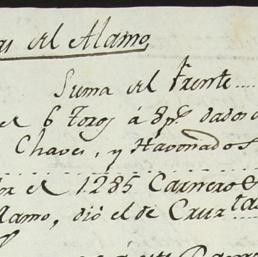 as del Alamo,
Suma del Frente....
el 6 Toros á 8ps. dados
Chaves, y Havonados
or el 1285 Carneros
Alamo, dió el de Cruz